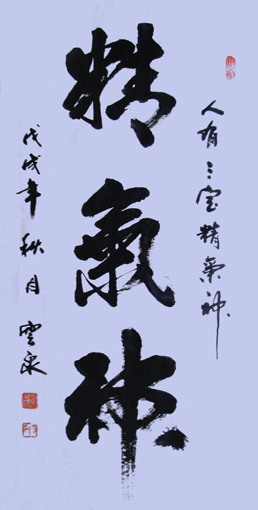 人有三宝精氣神
精氣神
戊戌年秋月雲泉